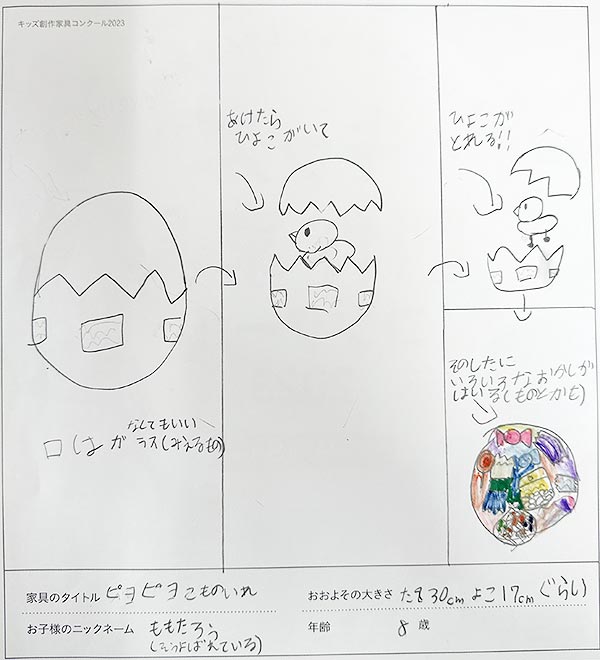 キッズ創作家具コンクール2023
あけたら
ひよこがいて
ひよこが
とれる!!
そのしたに
いろいろなおかしが
はいる(ものとかも)
なしでもいい
口はガラス(みえるもの)
家具のタイトル ピヨピヨこものいれ
おおよその大きさ たて30cm よこ17cmぐらい
お子様のニックネーム ももたろう
年齢 8 歳